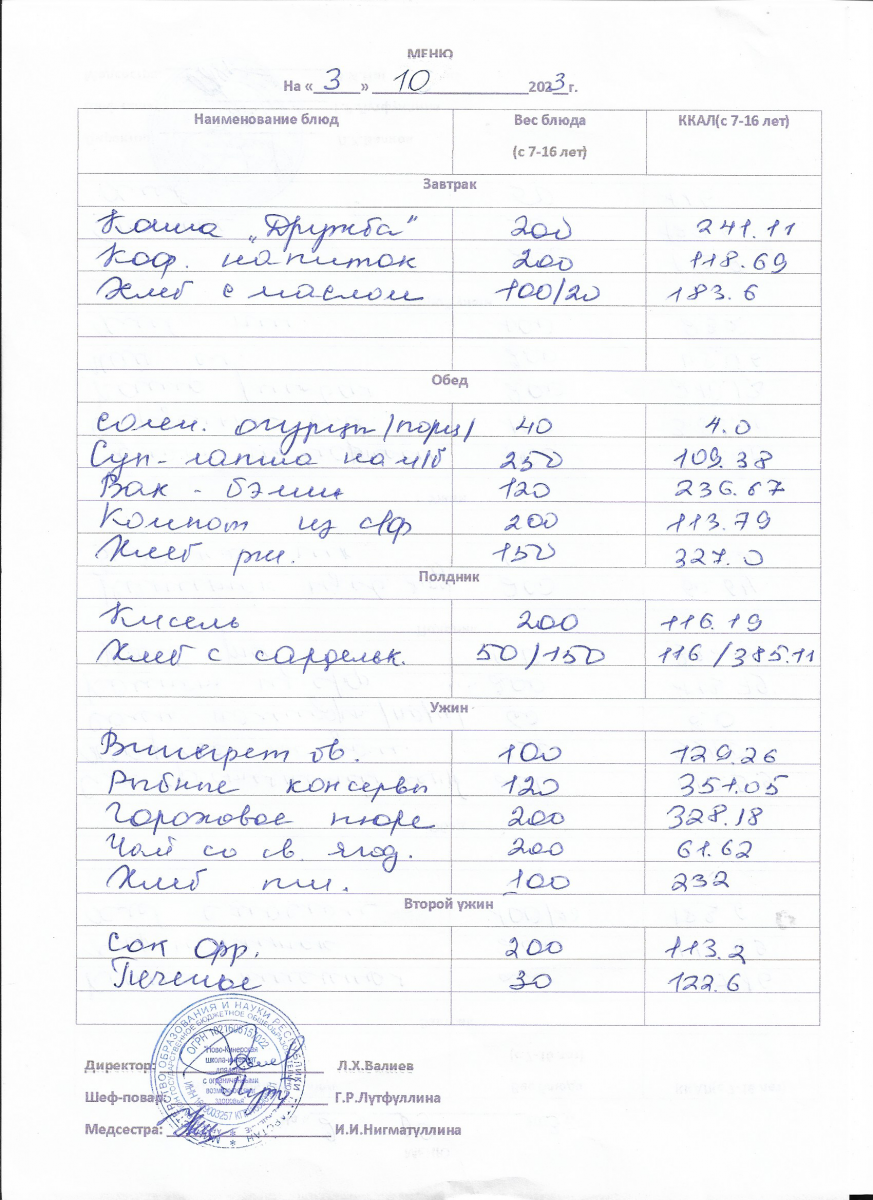 МЕНЮ
На « 3 » 10 2023 г.
Наименование блюд Вес блюда (с 7-16 лет) ККАЛ(с 7-16 лет)
Завтрак
Каша „Дружба" 200 241.11
Коф. напиток 200 118.69
Хлеб с маслом 100/20 183.6
Обед
солен. огурцы /порц/ 40 4.0
Суп-лапша на м/б 250 109.38
Вак-бэлиш 120 236.67
Компот из с/ф 200 113.79
Хлеб рж. 150 327.0
Полдник
Кисель 200 116.19
Хлеб с сардельк. 50/150 116/385.11
Ужин
Винегрет ов. 100 129.26
Рыбные консервы 120 351.05
Гороховое пюре 200 328.18
Чай со св. ягод. 200 61.62
Хлеб пш. 100 232
Второй ужин
Сок фр. 200 113.2
Печенье 30 122.6
Директор: Л.Х.Валиев
Шеф-повар: Г.Р.Лутфуллина
Медсестра: И.И.Нигматуллина
"Ново-Кинерская
школа-интернат
с ограниченными
возможностями
здоровья"